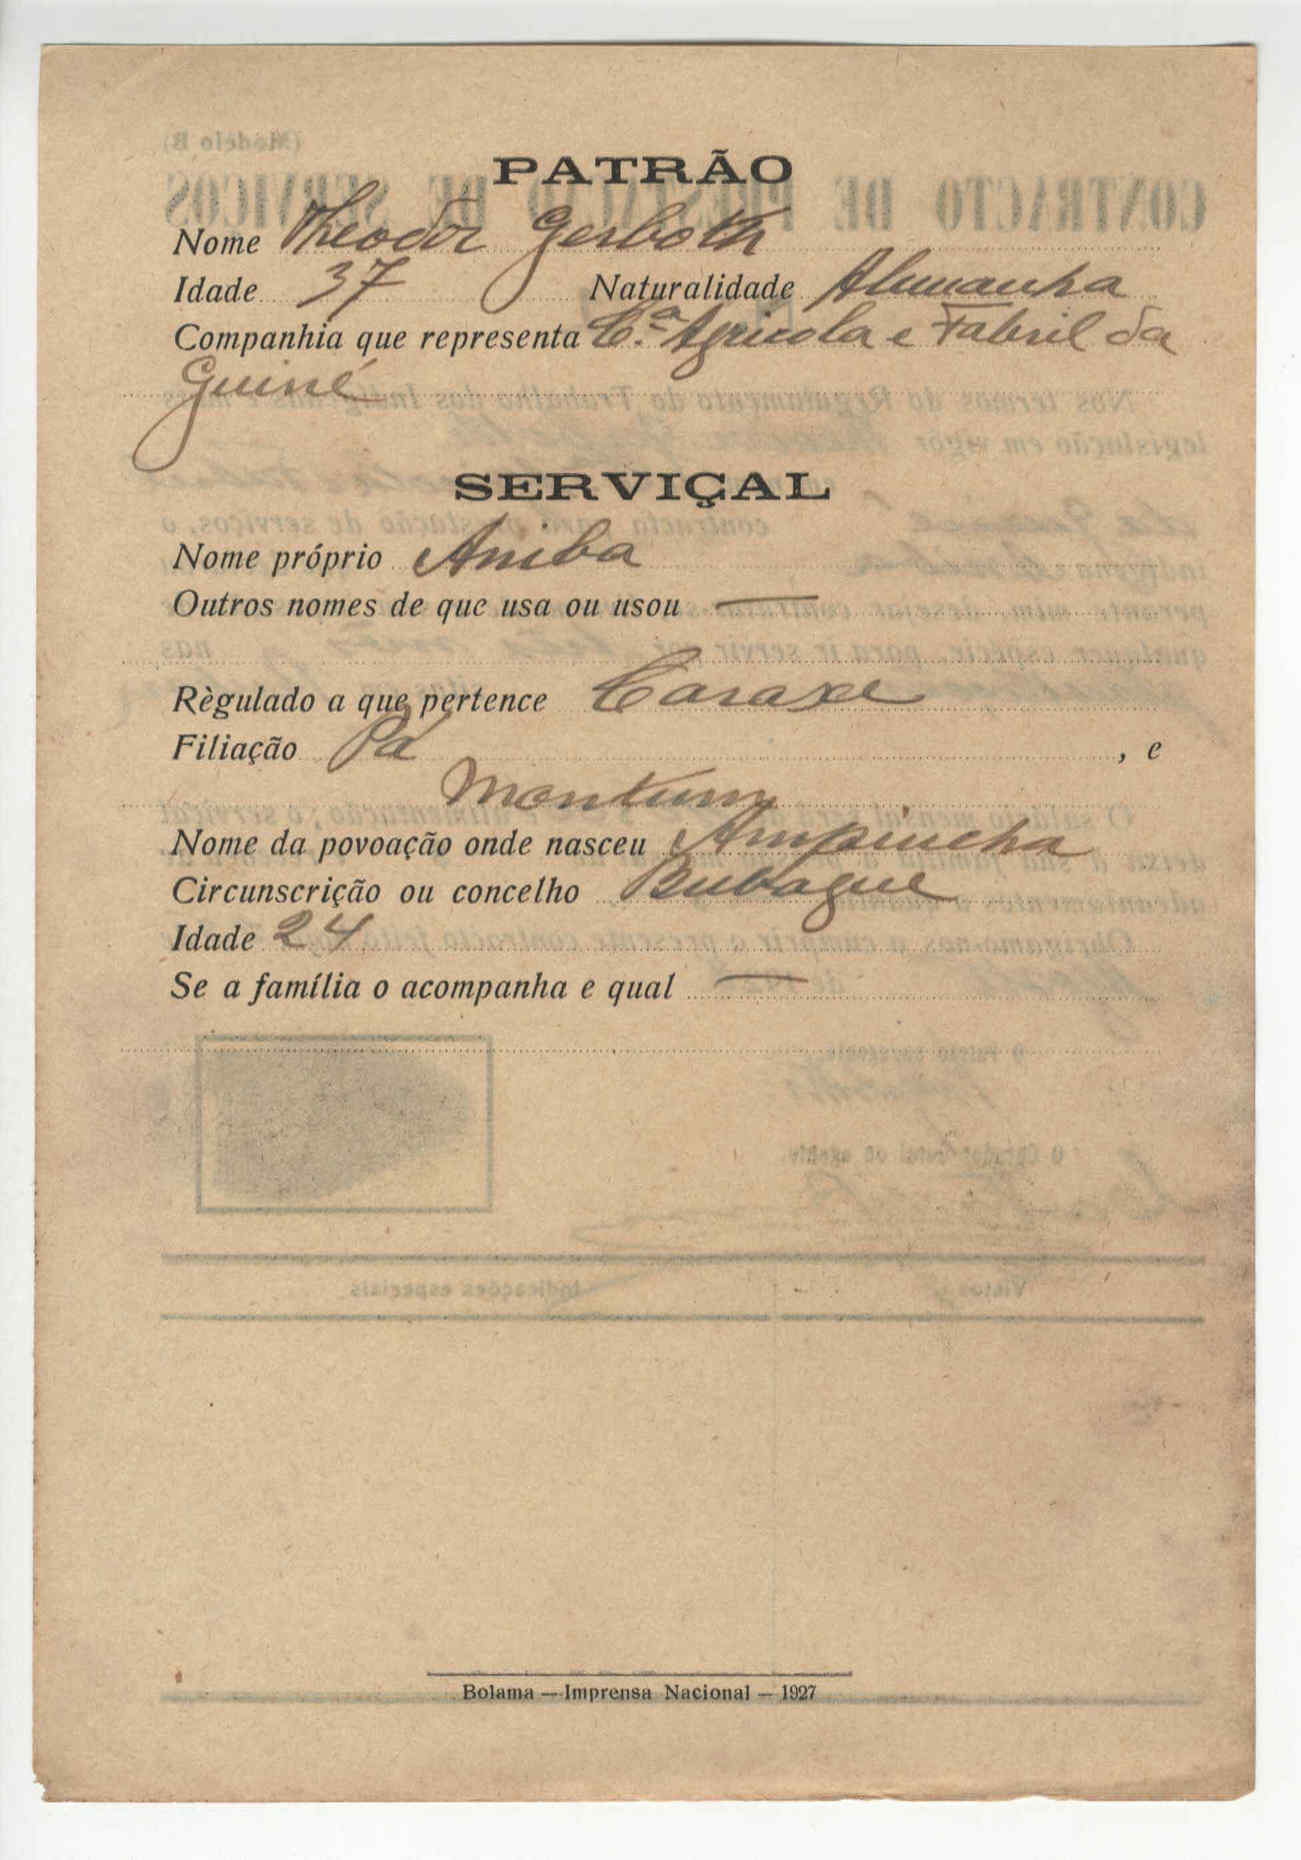 PATRÃO
Nome Theodor Gerboth
Idade 37 Naturalidade Alemanha
Companhia que representa C.ª Agricola e Fabril da
Guiné
SERVIÇAL
Nome próprio Aniba
Outros nomes de que usa ou usou —
Règulado a que pertence Caraxe
Filiação Pá , e
Montum
Nome da povoação onde nasceu Ampincha
Circunscrição ou concelho Bubaque
Idade 24
Se a família o acompanha e qual —
Bolama — Imprensa Nacional — 1927